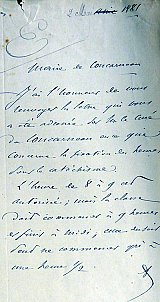 1881
Maire de Concarneau
J'ai l'honneur de vous
renvoyer la lettre qui vous
a été adressée par le Curé
de Concarneau en ce qui
concerne la fixation des heures
pour le catéchisme.
L'heure de 8 à 9 est
autorisée ; mais la classe
doit commencer à 9 heures
et finir à midi,
ne commence qu'à
une heure 1/2